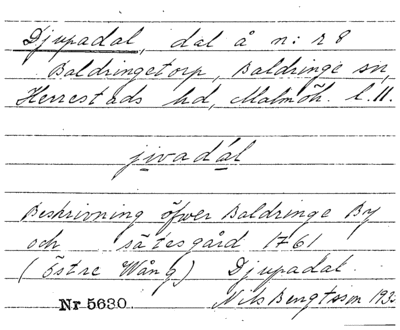 Djupadal, dal å n: r 8
Baldringetorp, Baldringe sn,
Herrestads hd, Malmöh. l. 11.
jivadál
Beskrivning öfver Baldringe By
och sätesgård 1761
(Östre Wång) Djupadal.
Nr 5630. Nils Bengtsson 193